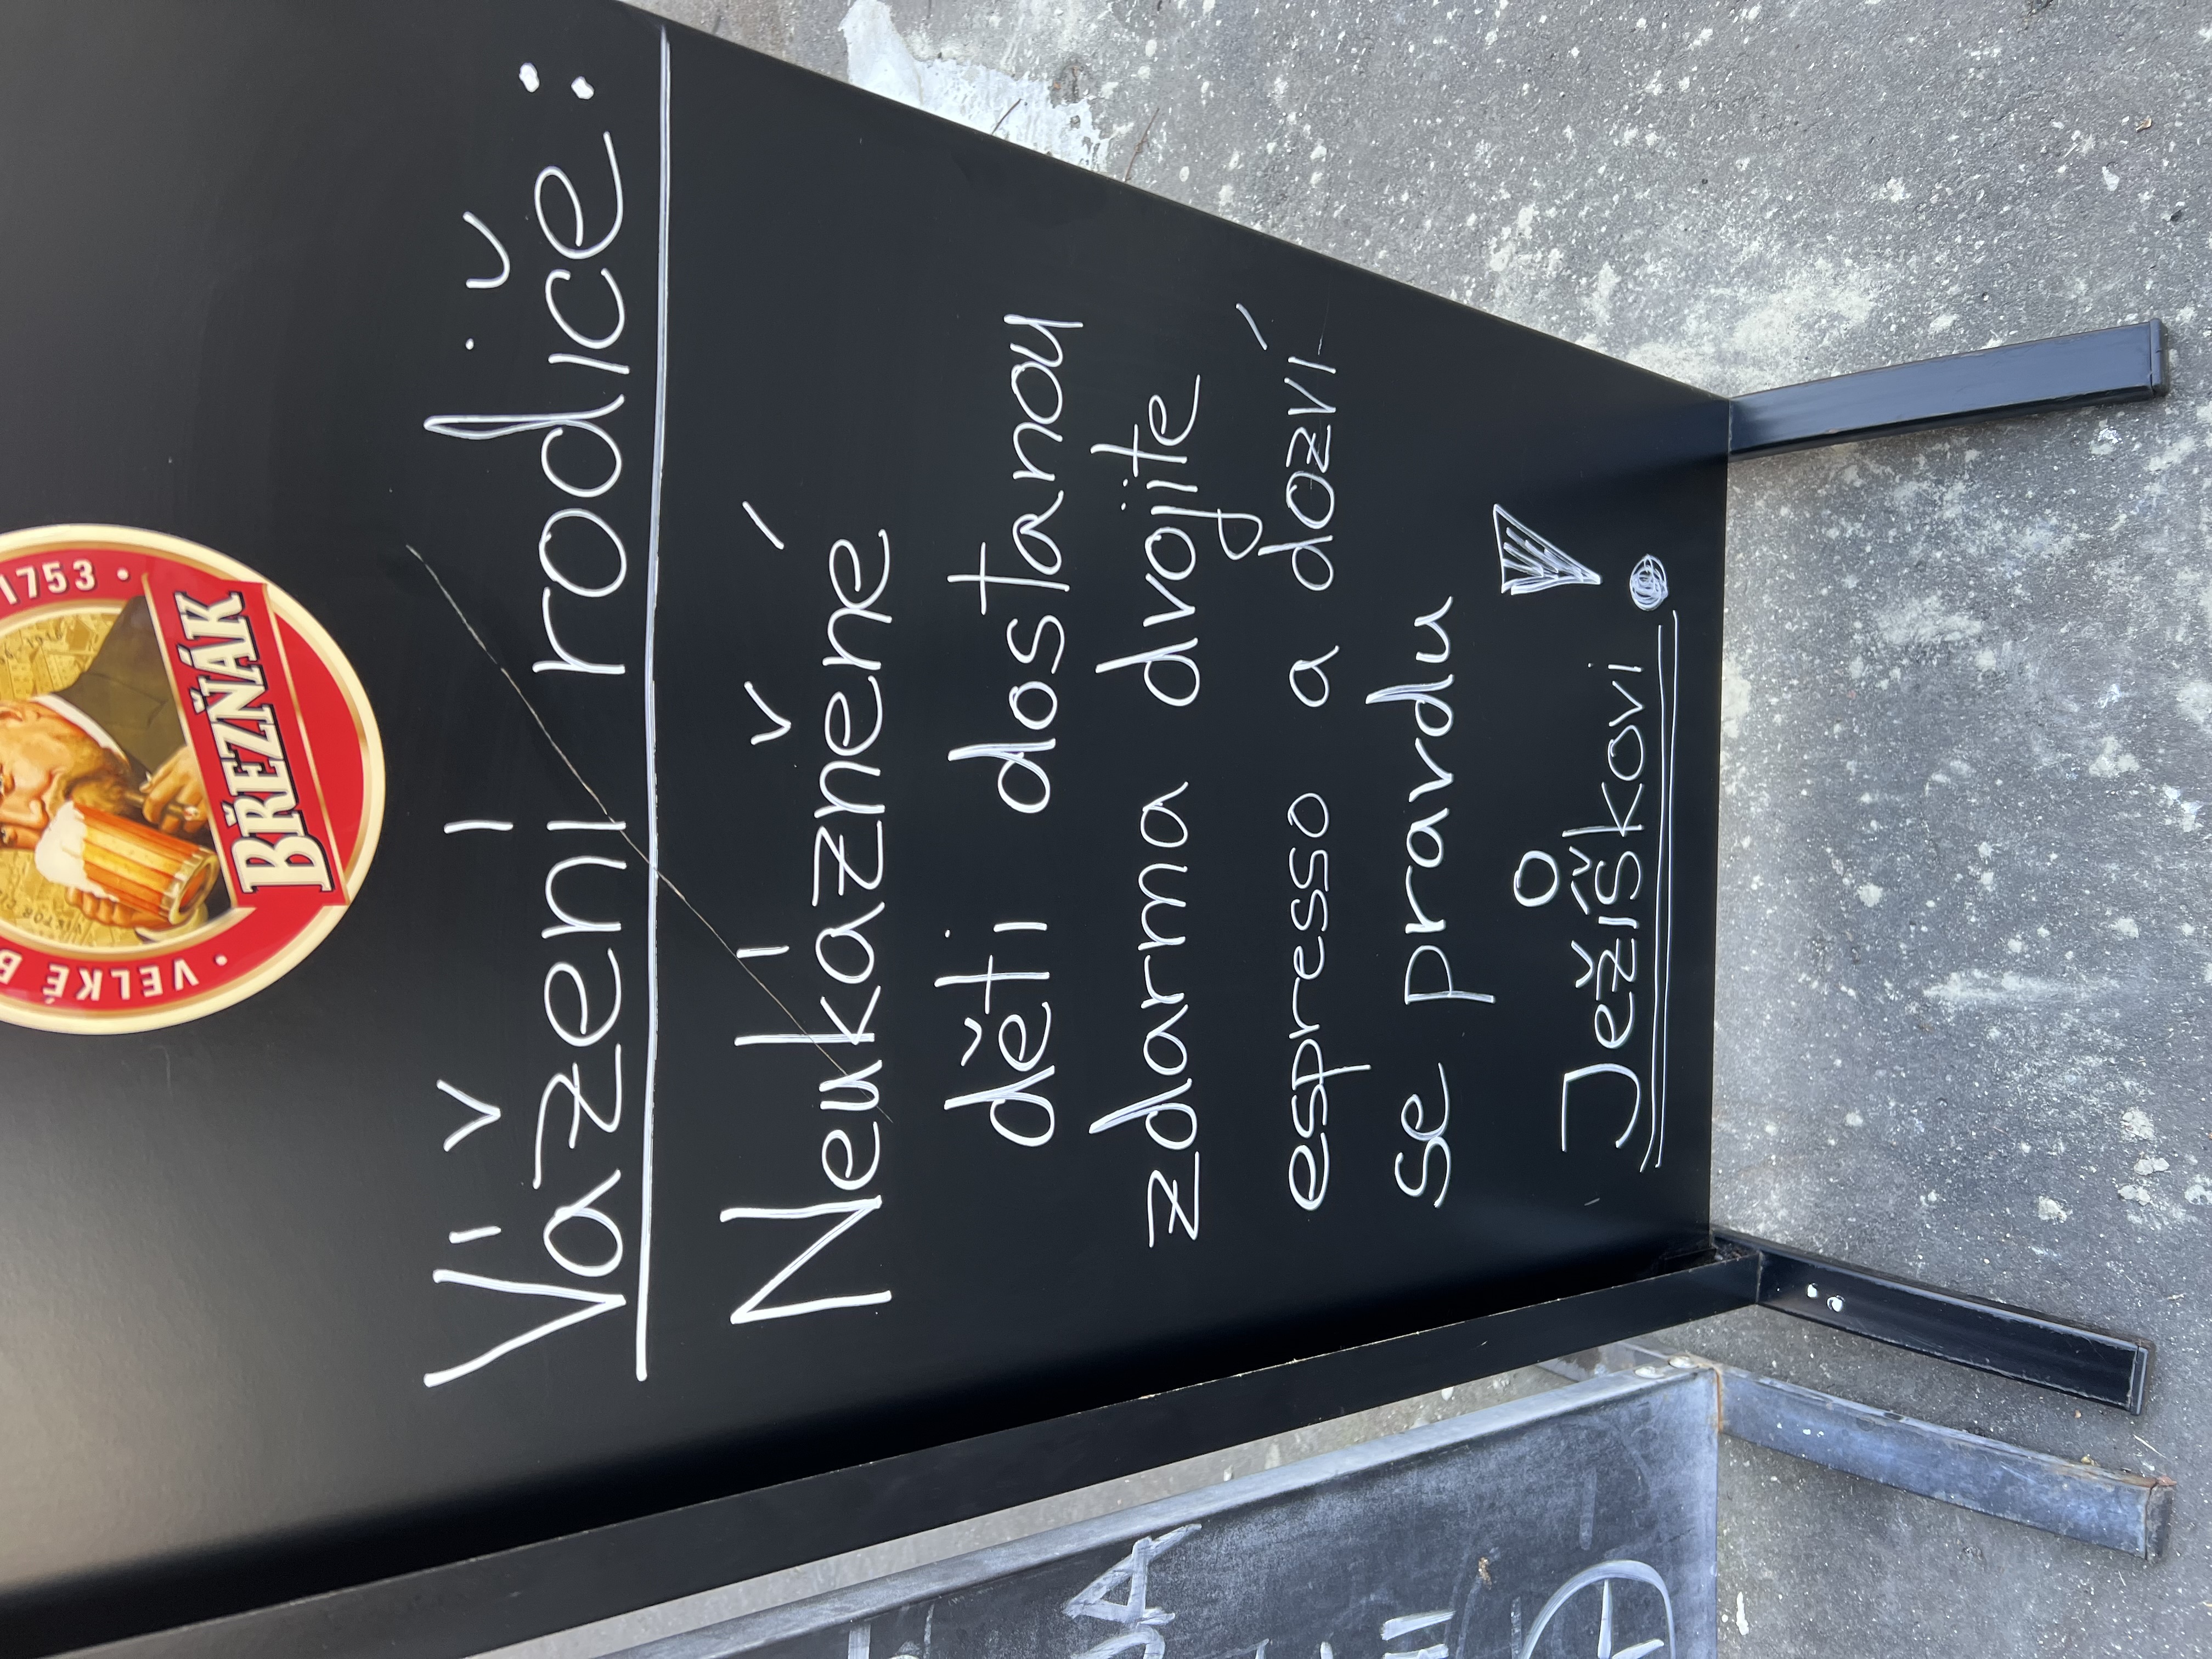 1753
VELKÉ B
BŘEZŇÁK
Vážení rodiče:
Neukázněné
děti dostanou
zdarma dvojite
espresso a dozví
se pravdu
o Ježíškovi!